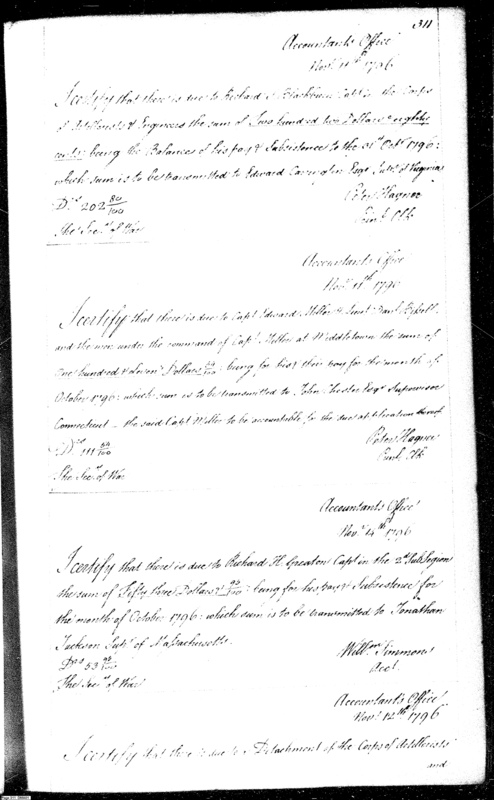 311
Accountants Office
Novr. 11th 1796
I certify that there is due to Richard S Blackburn Capt in the Corps
of Artillerists & Engineers the sum of Two hundred two Dollars & eighty
cents: being the Balances of his pay & Subsistence to the 31st Octr. 1796:
which sum is to be transmitted to Edward Carrington Esqr Supr. of Virginia
Ds. 202 80/100
Peter Hagner
Prinl. Clk
The Secy. of War
Accountants Office
Novr. 11th 1796
I certify that there is due to Capt Edward Miller & Lieut Danl.
and the men under the command of Capt. Miller at Middletown the sum of
One hundred & Eleven Dollars 84/100 being for his & their pay for the month of
October 1796: which sum is to be transmitted to John Chester Esqr Supervisor
Connecticut - the said Capt Miller to be accountable for the due application thereof
Ds. 111 84/100
Peter Hagner
Prinl. Clk
The Secy. of War
Accountants Office
Novr. 14th 1796
I certify that there is due to Richard H. Greaton Capt in the 2d Sub Legion
the sum of Fifty three Dollars & being for his pay & Subsistence for
the month of October 1796: which sum is to be transmitted to Jonathan
Jackson Supr. of Massachusetts.
Drs 53
Willm Simmons
Acct.
The Secy. of War
Accountants Office
Novr. 12th 1796
I certify that there is due to a Detachment of the Corps of Artillerists
and